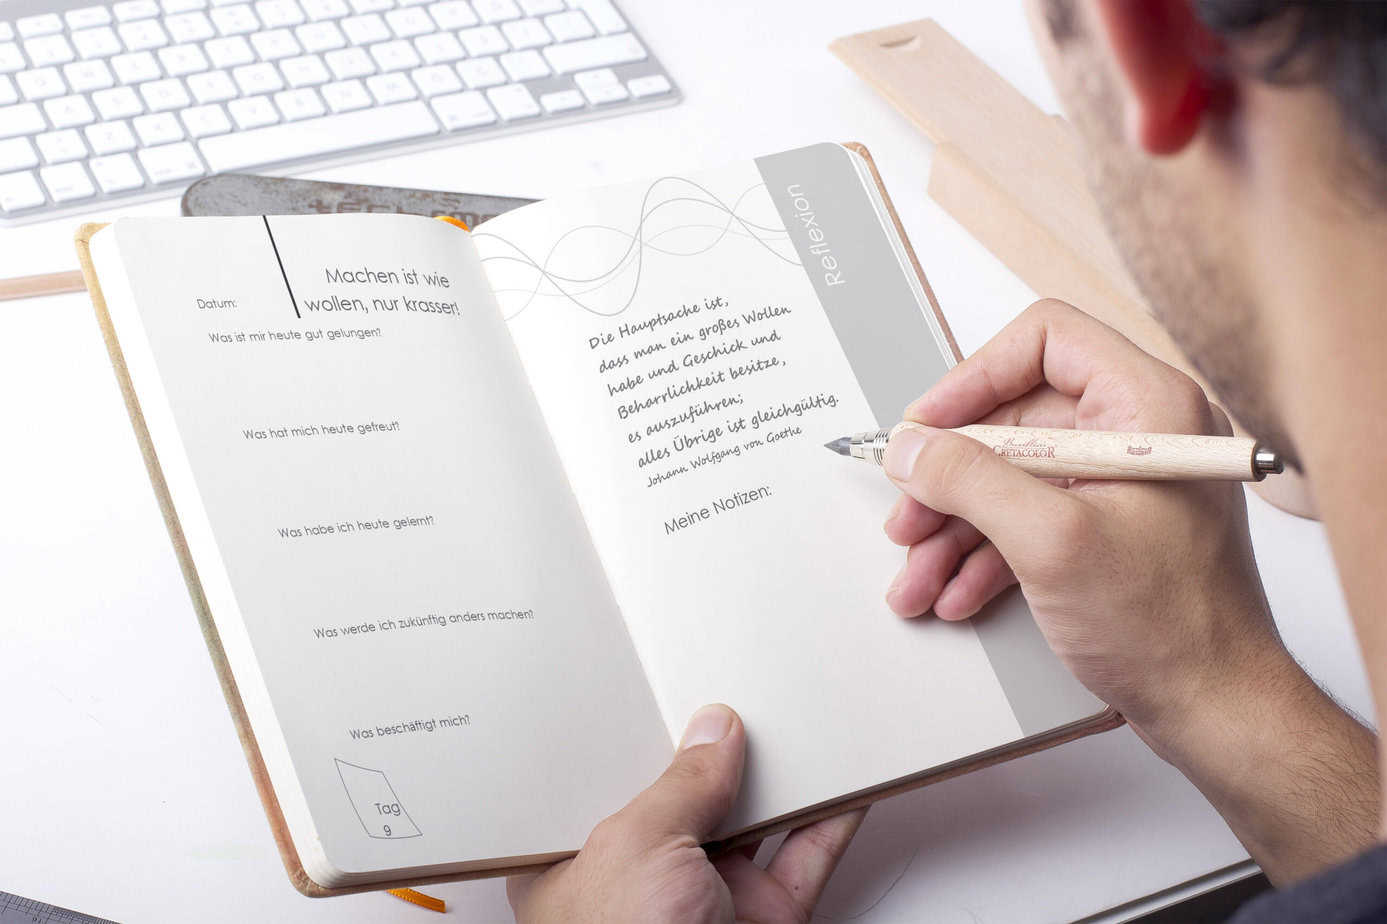 Datum:
Machen ist wie
wollen, nur krasser!
Was ist mir heute gut gelungen?
Was hat mich heute gefreut?
Was habe ich heute gelernt?
Was werde ich zukünftig anders machen?
Was beschäftigt mich?
Tag
9
Reflexion
Die Hauptsache ist,
dass man ein großes Wollen
habe und Geschick und
Beharrlichkeit besitze,
es auszuführen;
alles Übrige ist gleichgültig.
Johann Wolfgang von Goethe
Meine Notizen:
CRETACOLOR